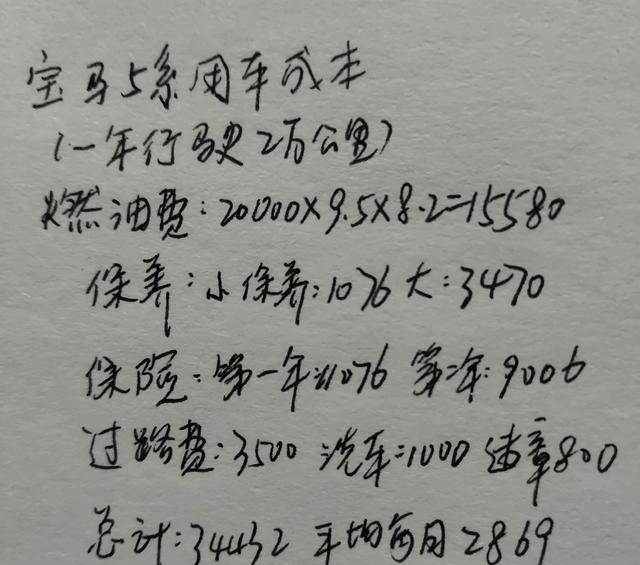 宝马5系用车成本
(一年行驶2万公里)
燃油费:20000×9.5×8.2=15580
保养:小保养:1076 大:3470
保险:第一年:11076 第二年:9006
过路费:3500 洗车:1000 违章800
总计:34432 平均每月2869